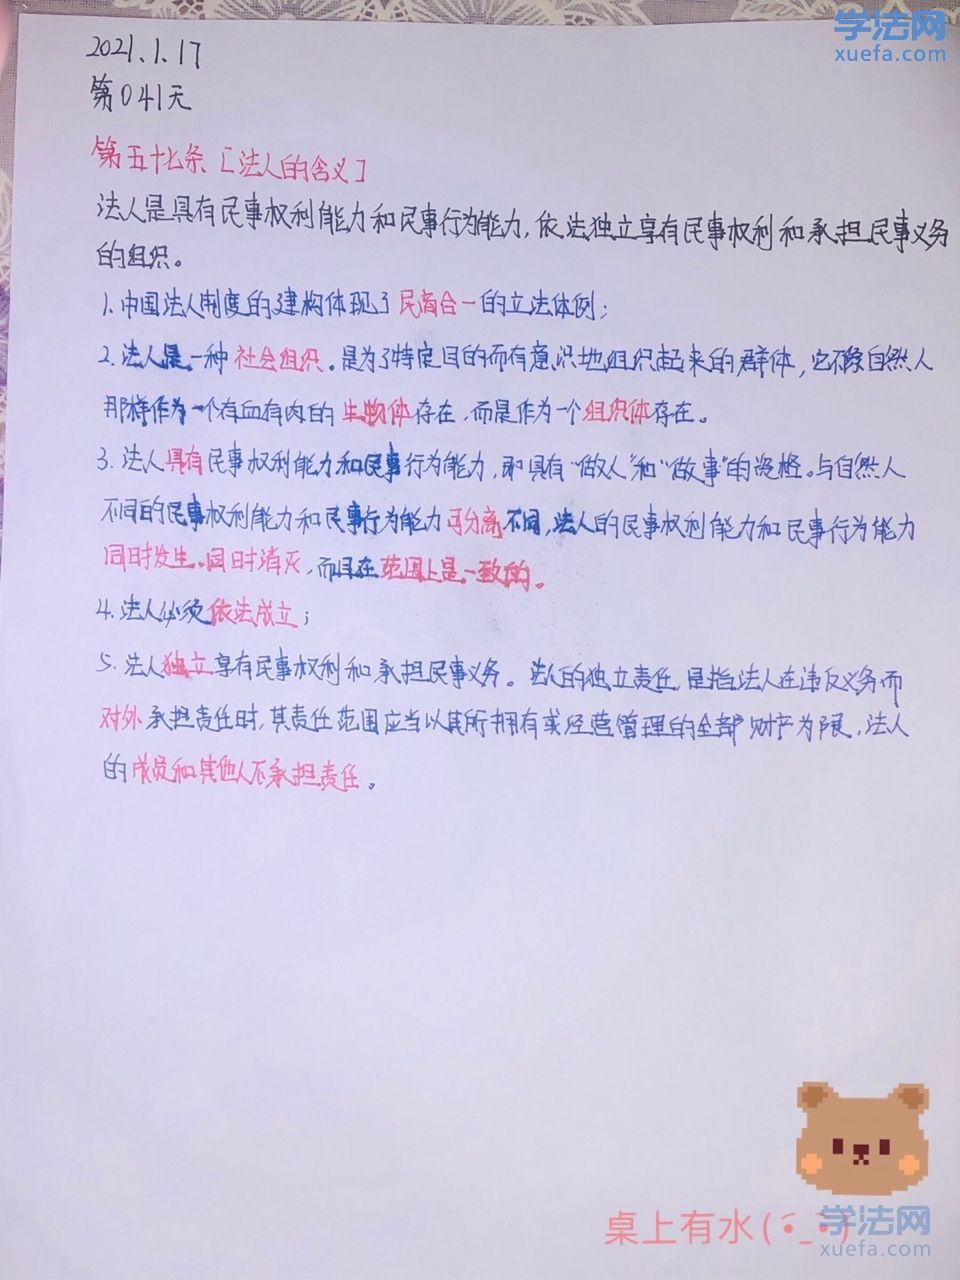 学法网
xuefa.com
2021.1.17
第041天
第五十七条［法人的含义］
法人是具有民事权利能力和民事行为能力，依法独立享有民事权利和承担民事义务
的组织。
1.中国法人制度的建构体现了民商合一的立法体例；
2.法人是一种社会组织。是为了特定目的而有意识地组织起来的群体，它不像自然人
那样作为一个有血有肉的生物体存在，而是作为一个组织体存在。
3.法人具有民事权利能力和民事行为能力，即具有“做人”和“做事”的资格。与自然人
不同的民事权利能力和民事行为能力可分离不同，法人的民事权利能力和民事行为能力
同时发生。同时消灭，而且在范围上是一致的。
4.法人必须依法成立；
5.法人独立享有民事权利和承担民事义务。法人的独立责任，是指法人在违反义务而
对外承担责任时，其责任范围应当以其所拥有或经营管理的全部财产为限，法人
的成员和其他人不承担责任。
桌上有水(•́_•̀)
学法网
xuefa.com